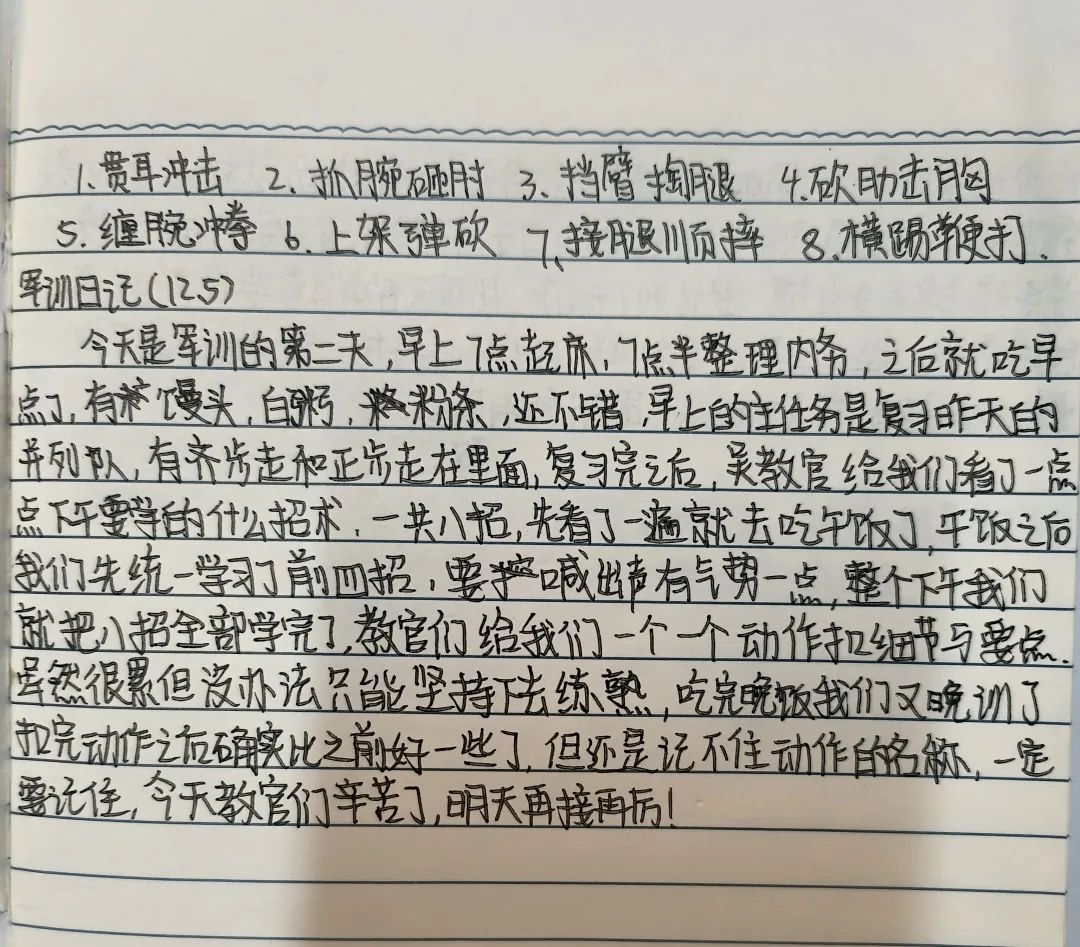 1.贯耳冲击 2.抓腕砸肘 3.挡臂掏腿 4.砍肋击胸
5.缠腕冲拳 6.上架弹砍 7、接腿涮摔 8.横踢鞭打.
军训日记(12.5)
今天是军训的第二天,早上7点起床,7点半整理内务,之后就吃早
点了,有馒头,白粥,粉条,还不错,早上的主任务是复习昨天的
并列队,有齐步走和正步走在里面,复习完之后,吴教官给我们看了一点
点下午要学的什么招术.一共八招,先看了一遍就去吃午饭了,午饭之后
我们先统一学习了前四招,要喊出声有气势一点,整个下午我们
就把八招全部学完了,教官们给我们一个一个动作扣细节与要点.
虽然很累但没办法只能坚持下去练熟,吃完晚饭我们又晚训了
扣完动作之后确实比之前好一些了,但还是记不住动作的名称,一定
要记住,今天教官们辛苦了,明天再接再厉!